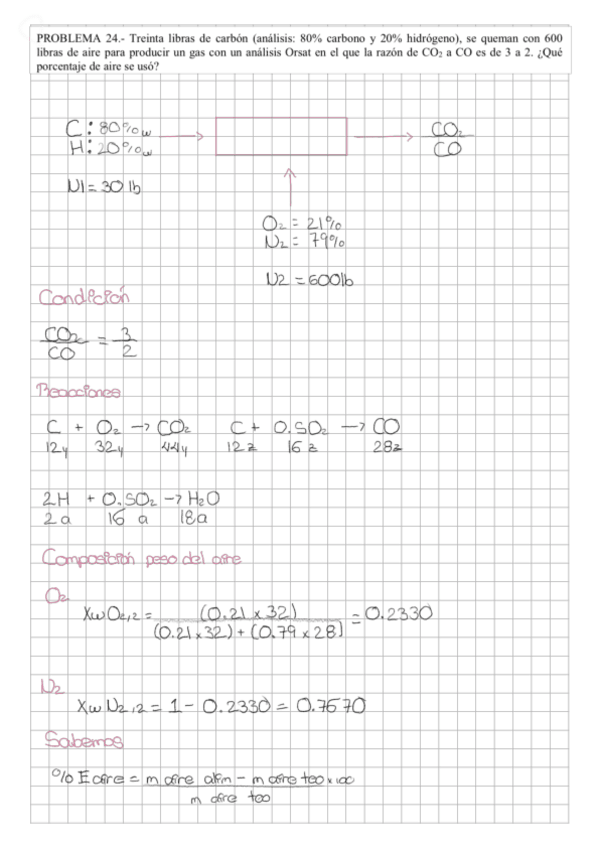 PROBLEMA 24.- Treinta libras de carbón (análisis: 80% carbono y 20% hidrógeno), se queman con 600
libras de aire para producir un gas con un análisis Orsat en el que la razón de CO₂ a CO es de 3 a 2. ¿Qué
porcentaje de aire se usó?
C: 80%w
H: 20%w
CO₂
CO
N1 = 30 lb
O₂ = 21%
N₂ = 79%
N2 = 600lb
Condición
CO₂/CO = 3/2
Reacciones
C + O₂ → CO₂ C + 0.5O₂ → CO
12y 32y 44y 12z 16z 28z
2H + 0.5O₂ → H₂O
2a 16a 18a
Composición peso del aire
O₂
XwO₂,2 = (0.21 x 32) / (0.21 x 32) + (0.79 x 28) = 0.2330
N₂
XwN₂,2 = 1 - 0.2330 = 0.7670
Sabemos
%E aire = m aire alim - m aire teo x 100
m aire teo